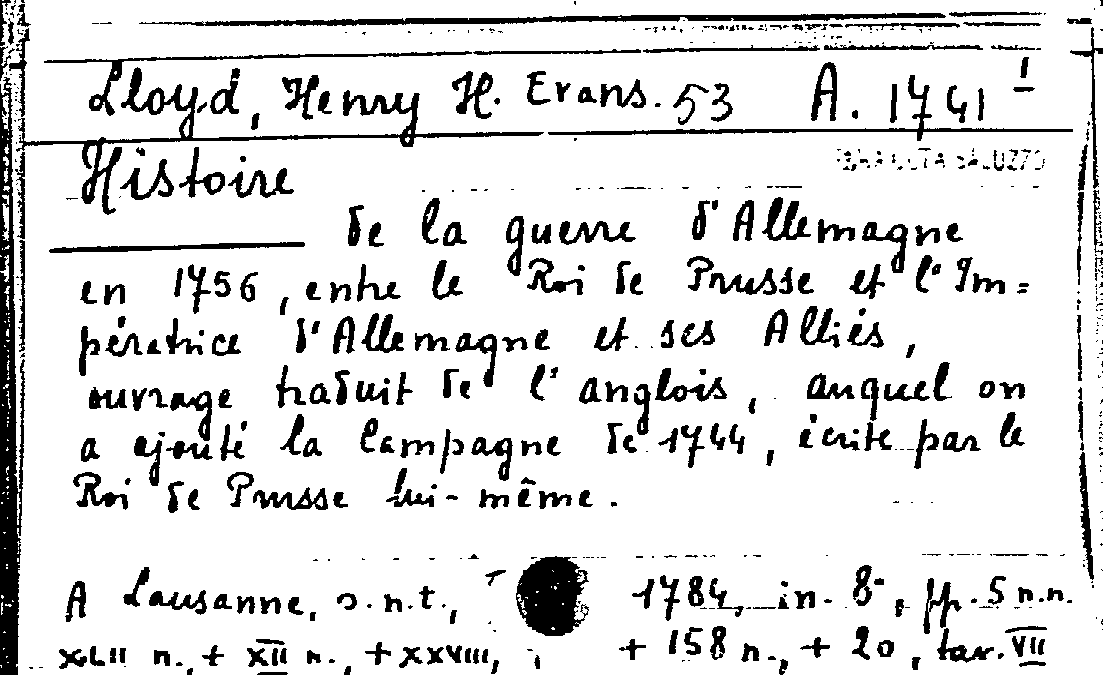 Lloyd, Henry H. Evans. 53 A. 1741 1
Histoire
de la guerre d'Allemagne
en 1756, entre le Roi de Prusse et l'Im=
pératrice d'Allemagne et ses Alliés,
ouvrage traduit de l'anglois, auquel on
a ajouté la Campagne de 1744, écrite par le
Roi de Prusse lui-même.
A Lausanne, s.n.t., 1784, in-8°, pp. 5 n.n.
XLII n., + XII n., + XXVIII, + 158 n., + 20, tav. VII